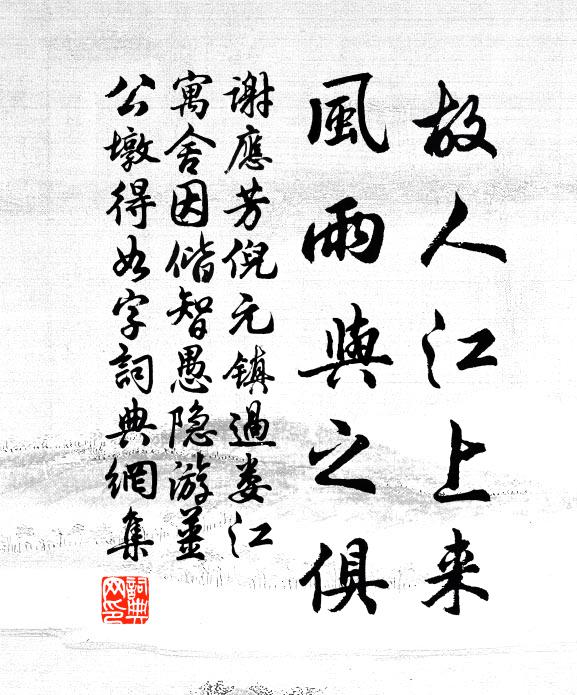 故人江上来
風雨與之俱
谢應芳倪元镇過娄江
寓舍因偕智愚隐游薑
公墩得如字詞典網集